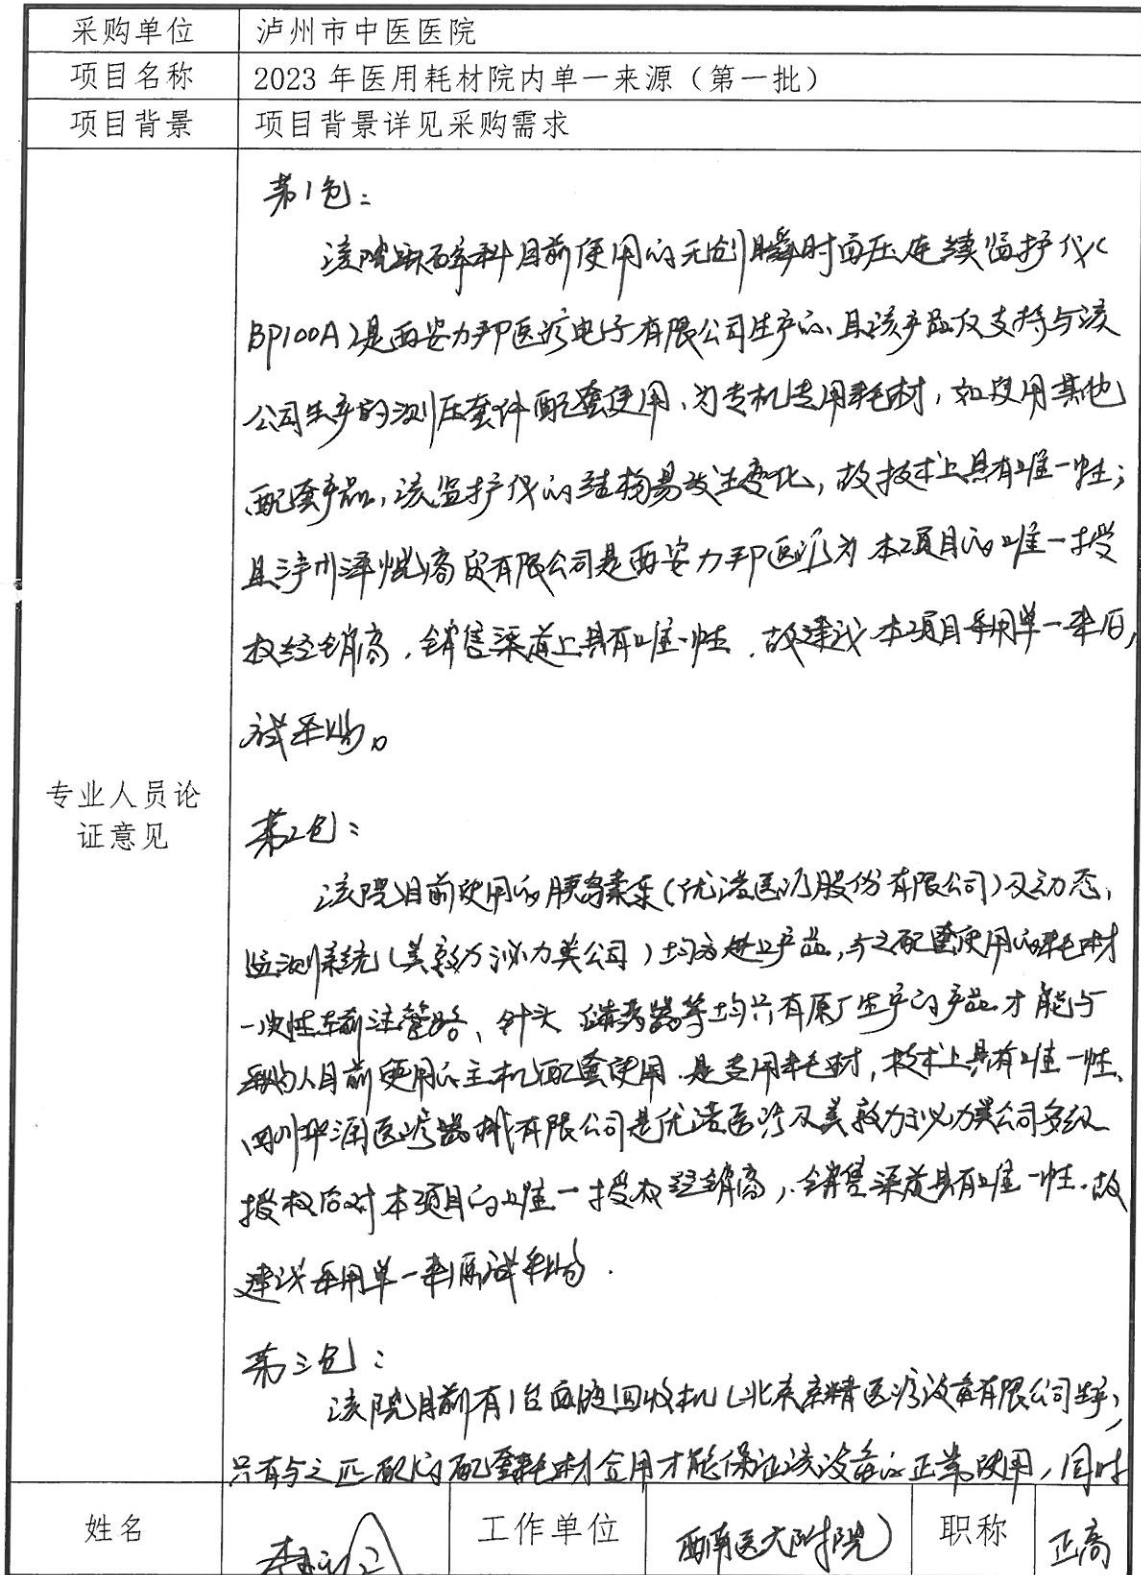 采购单位 泸州市中医医院
项目名称 2023年医用耗材院内单一来源（第一批）
项目背景 项目背景详见采购需求
专业人员论证意见
第1包：
该院麻醉科目前使用的无创瞬时血压连续监护仪（
BP100A）是西安力邦医疗电子有限公司生产的、且该产品仅支持与该
公司生产的测压套件配套使用、为专机专用耗材，如使用其他
配套产品，该监护仪的结构易发生变化，故技术上具有唯一性；
且泸州泽悦商贸有限公司是西安力邦医疗为本项目的唯一授
权经销商，销售渠道上具有唯一性．故建议本项目采用单一来源
试采购。
第2包：
该院目前使用的胰岛素泵（优洁医疗股份有限公司）及动态
监测系统（美敦力泌力美公司）均为进口产品，与之配套使用的耗材
一次性输注管路、针头、储药器等均只有原厂生产的产品才能与
采购人目前使用的主机配套使用．是专用耗材，技术上具有唯一性、
四川华润医疗器械有限公司是优洁医疗及美敦力泌力美公司多级
授权后对本项目的唯一授权经销商，销售渠道具有唯一性．故
建议采用单一来源试采购．
第三包：
该院目前有1台血液回收机（北京京精医疗设备有限公司生产，
只有与之匹配的配套耗材合用才能保证该设备的正常使用，同时
姓名 工作单位 西南医大附院 职称 正高